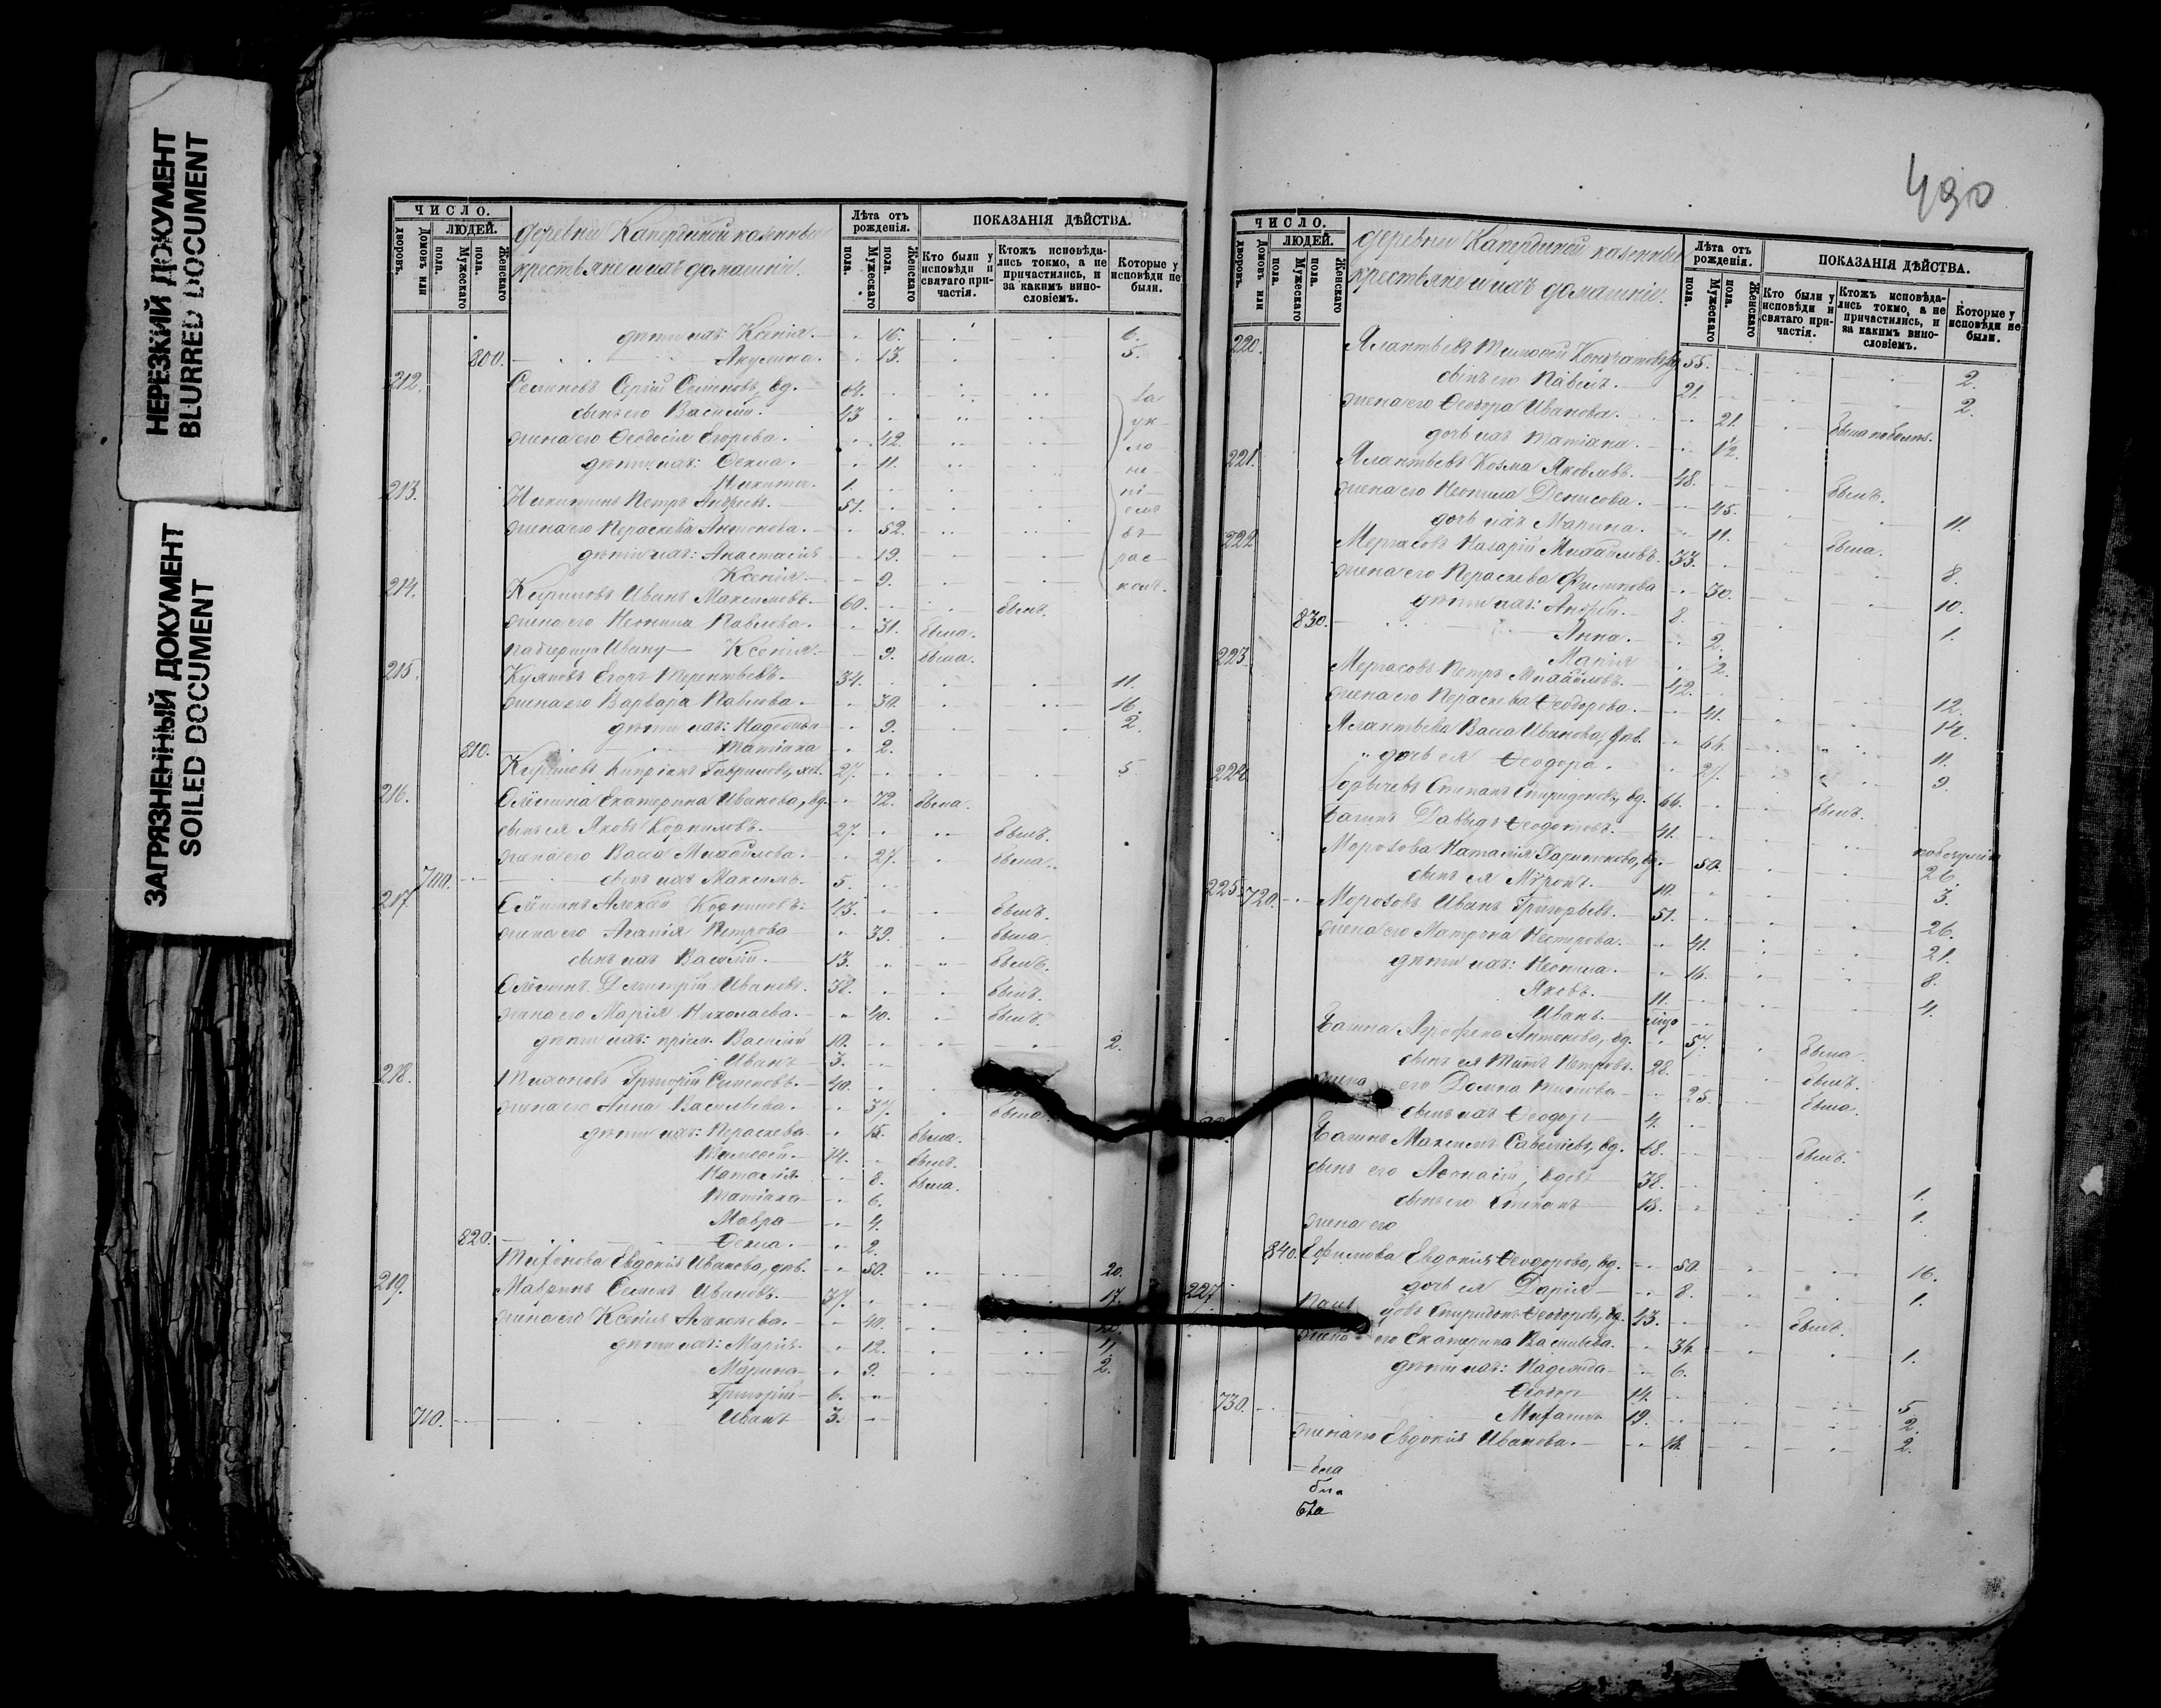 НЕРЕЗКИЙ ДОКУМЕНТ
BLURRED DOCUMENT
ЗАГРЯЗНЕННЫЙ ДОКУМЕНТ
SOILED DOCUMENT
ЧИСЛО.
Домовъ или дворовъ.
ЛЮДЕЙ.
Мужескаго пола.
Женскаго пола.
деревни
крестьяне и ихъ домашніе.
Лѣта отъ рожденія.
Мужескаго пола.
Женскаго пола.
ПОКАЗАНІЯ ДѢЙСТВА.
Кто были у исповѣди и святаго причастія.
Ктожъ исповѣдались токмо, а не причастились, и за какимъ винословіемъ.
Которые у исповѣди не были.
дѣти ихъ: Ксенія. 16. 6.
800. Акулина. 13. 5.
212. Семеновъ Сергій Семеновъ, вд. 64.
сынъ его Василій. 43.
жена его Ѳеодосія Егорова. 42.
дѣти ихъ: Ѳекла. 11.
Никита. 1.
213. Никитинъ Петръ Андреевъ. 51.
жена его Параскева Антонова. 52.
дѣти ихъ: Анастасія 19.
Ксенія. 9.
За укло не ні емъ въ рас колъ.
214. Кириловъ Иванъ Максимовъ. 60. былъ.
жена его Неонила Павлова. 31. была.
падчерица Ивану Ксенія. 9. была.
215. Егоръ Терентьевъ. 34. 11.
жена его Варвара Павлова. 30. 16.
дѣти ихъ: Надежда 9. 2.
810. Татіана 2.
Кириловъ Кипріанъ Гавриловъ, 27. 5.
216. Екатерина Иванова, вд. 72. была.
сынъ ея Яковъ Корниловъ. 27. былъ.
жена его Васса Михайлова. 27. была.
700. сынъ ихъ Максимъ. 5.
217. Алексѣй Корниловъ. 43. былъ.
жена его Агапія Петрова 39. была.
сынъ ихъ Василій. 13. былъ.
Димитрій Ивановъ. 38. былъ.
жена его Марія Николаева. 40. былъ.
дѣти ихъ: пріем. Василій 10. 2.
Иванъ 3.
218. Тихоновъ Григорій Семеновъ. 40.
жена его Анна Васильева. 37. была.
дѣти ихъ: Параскева 15. была.
Тимоѳей. 14. былъ.
Наталія 8. была.
Татіана 6.
Мавра 4.
820. Ѳекла. 2.
Евдокія Иванова, дѣв. 50. 20.
219. Мавринъ Семенъ Ивановъ. 37. 17.
жена его Ксенія Алексѣева. 40.
дѣти ихъ: Марія. 12. 11.
Марина 9. 2.
Григорій 6.
710. Иванъ 3.
490
ЧИСЛО.
Домовъ или дворовъ.
ЛЮДЕЙ.
Мужескаго пола.
Женскаго пола.
деревни
крестьяне и ихъ домашніе.
Лѣта отъ рожденія.
Мужескаго пола.
Женскаго пола.
ПОКАЗАНІЯ ДѢЙСТВА.
Кто были у исповѣди и святаго причастія.
Ктожъ исповѣдались токмо, а не причастились, и за какимъ винословіемъ.
Которые у исповѣди не были.
220. Тимоѳей 55. 2.
сынъ его Павелъ. 21. 2.
жена его Ѳеодора Иванова. 21. была
дочь ихъ Татіана. 1/2.
221. Козма Яковлевъ. 48. былъ.
жена его Неонила Денисова. 45. 11.
дочь ихъ Марина. 11. была.
222 Мергасовъ Назарій Михайловъ. 33. 8.
жена его Параскева Филипова 30. 10.
дѣти ихъ: Андрей. 8. 1.
830. Анна. 2.
Марія 1/2.
223. Мергасовъ Петръ Михайловъ. 42. 12.
жена его Параскева Ѳеодорова. 41. 14.
Васса Иванова, дѣв. 64. 11.
дочь ея Ѳеодора. 27. 9.
224. Степанъ Спиридоновъ, вд. 66. былъ.
Багинъ Давыдъ Ѳеодотовъ. 41.
Морозова Наталія Харитонова, вд. 50. 26.
сынъ ея Миронъ. 10. 3.
225. 720. Морозовъ Иванъ Григорьевъ. 51. 26.
жена его Матрона Нестерова. 41. 21.
дѣти ихъ: Неонила. 16. 8.
Яковъ. 11. 4.
Иванъ.
Багина Агрофена Антонова, вд. 57. была.
сынъ ея Титъ Петровъ. 28. былъ.
жена его Домна Титова 25. была.
сынъ ихъ Ѳеодоръ 4.
Багинъ Максимъ Савельевъ, вд. 68. былъ.
сынъ его Аѳонасій, вдовъ 38. 1.
сынъ его Степанъ 13. 1.
жена его
840. Ефимова Евдокія Ѳеодорова, вд. 50. 16.
дочь ея Дарія 8. 1.
227. Спиридонъ Ѳеодоровъ, 43. былъ.
жена его Екатерина Васильева. 34. 1.
дѣти ихъ: Надежда 6.
Ѳеодоръ 14. 5.
730. Михаилъ 19. 2.
жена его Евдокія Иванова. 18. 2.